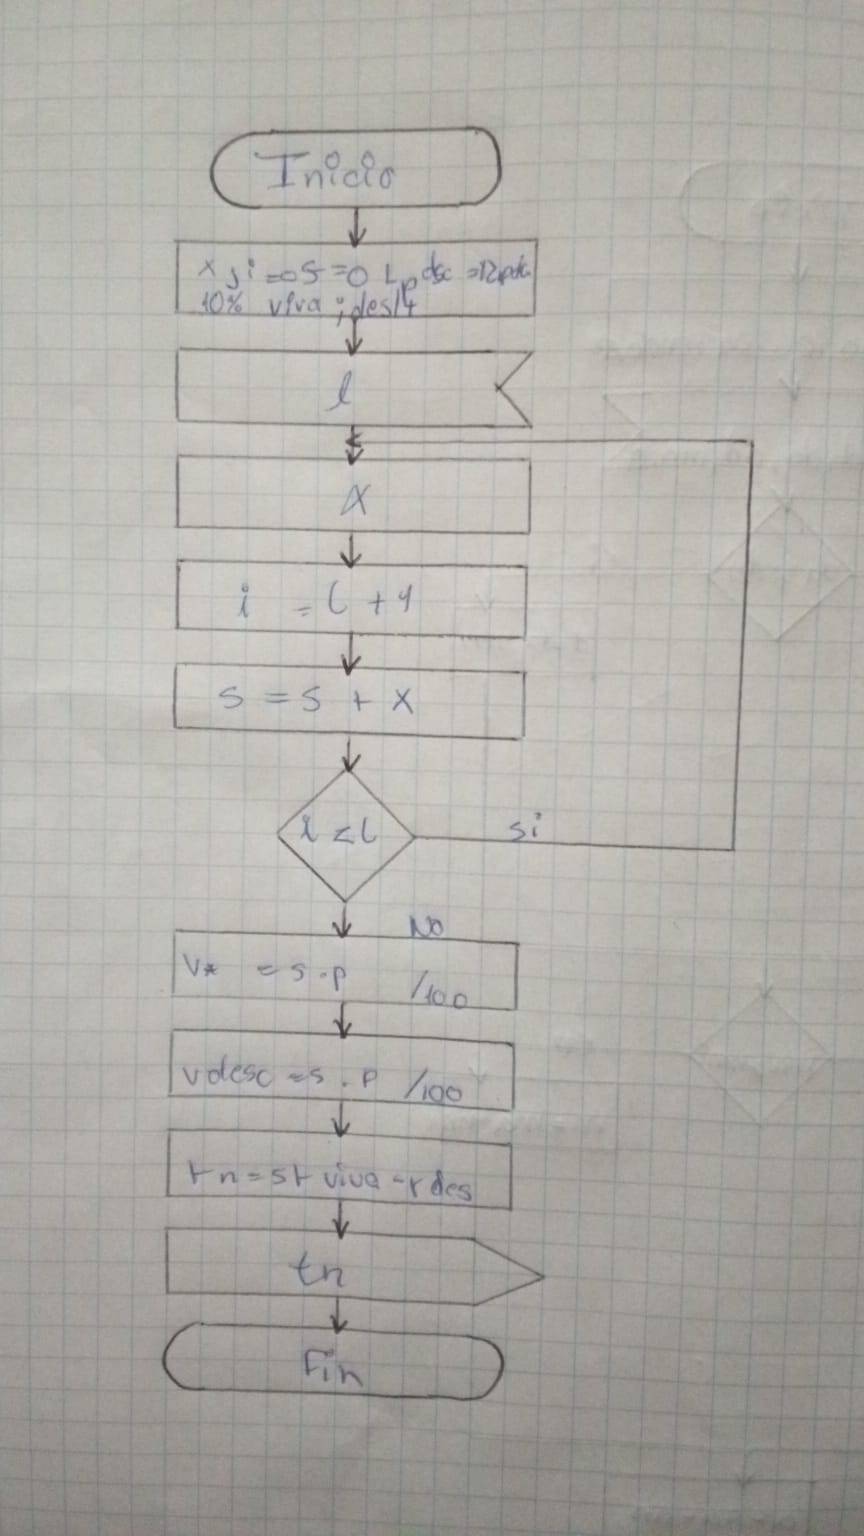 Inicio
x ; i = 0 S = 0 L p dsc = 12
10% viva ; des/4
l
X
i = l + 1
S = S + X
i < l
si
No
V* = s . p /100
v desc = s . p /100
tn = st viva - r des
tn
Fin